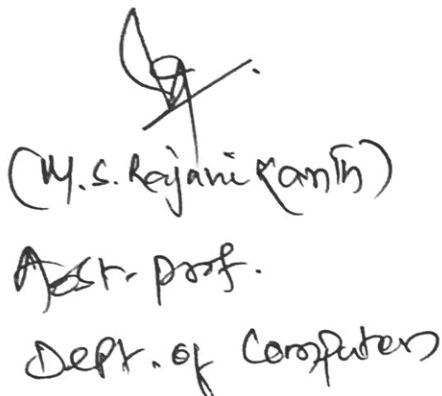 (M.S. Rajani Kanth)
Asst. prof.
Dept. of Computers